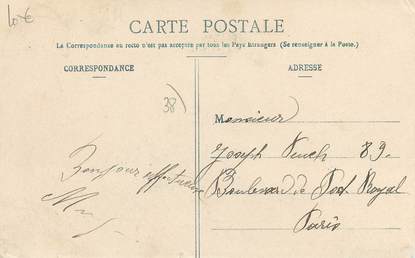 10 €
CARTE POSTALE
La Correspondance au recto n'est pas acceptée par tous les Pays étrangers (Se renseigner à la Poste.)
CORRESPONDANCE
ADRESSE
38
Monsieur
Joseph 89
Boulevard de Port Royal
Paris
Bonjour affectueux